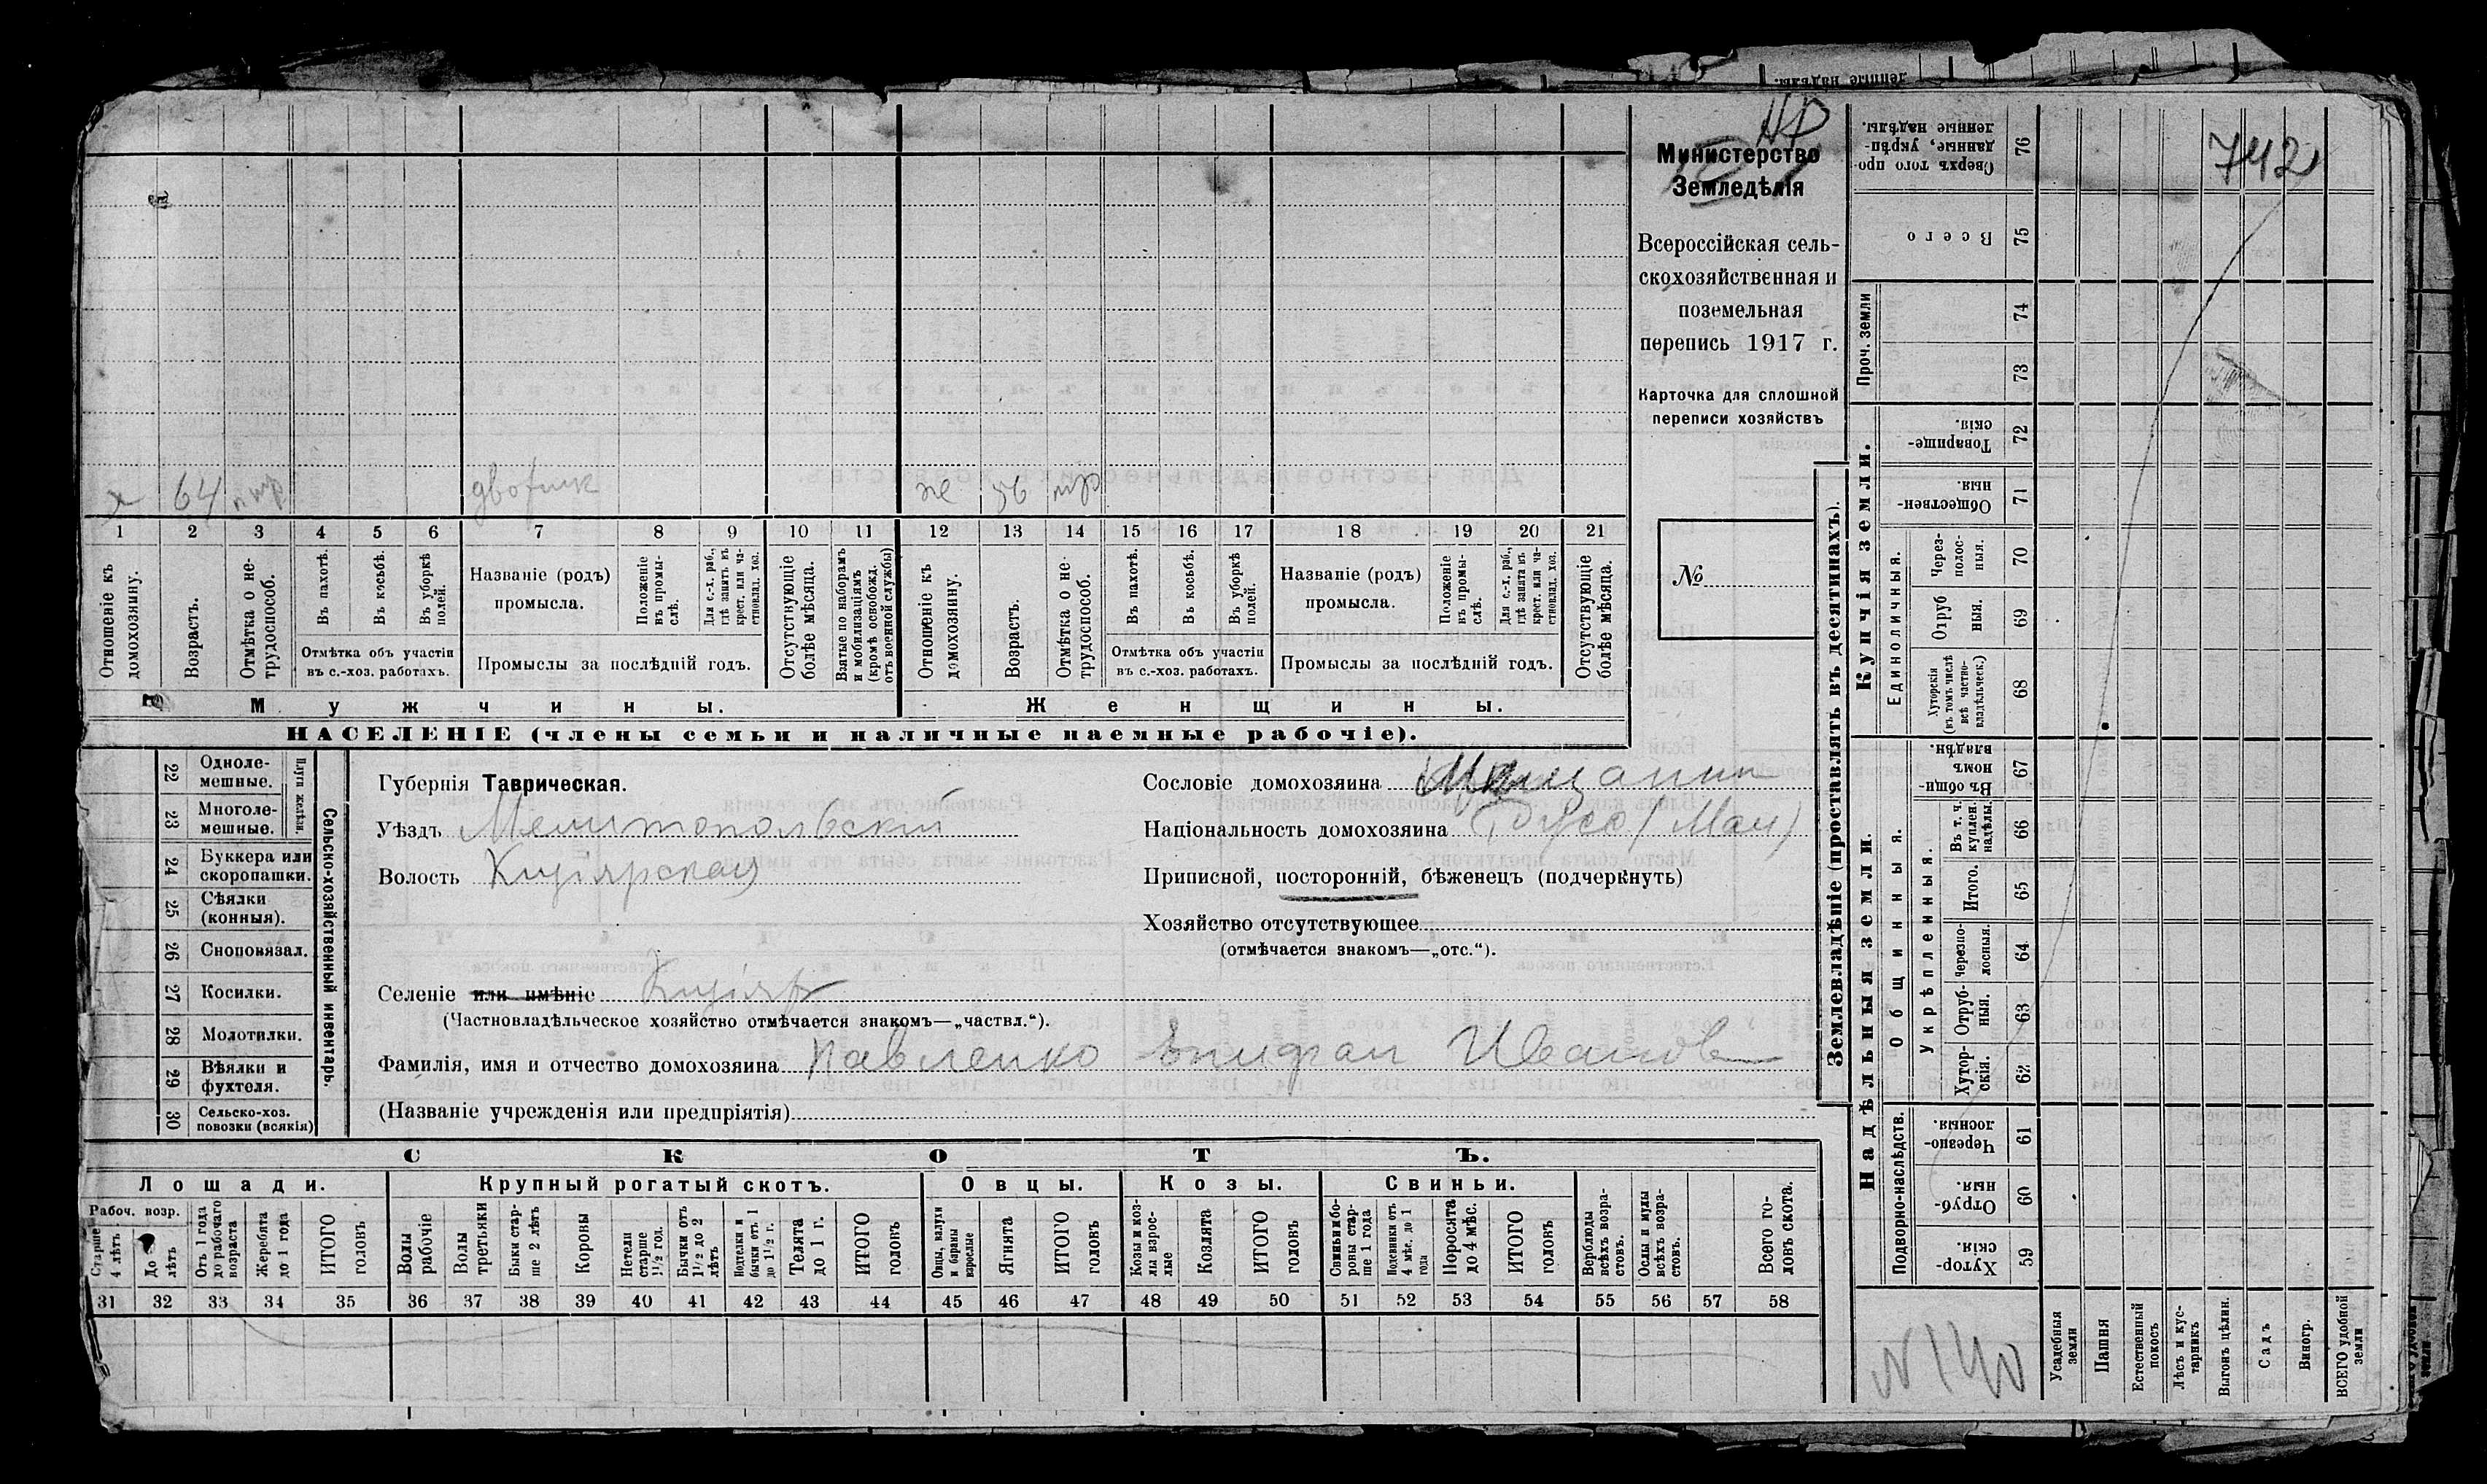 742
Министерство
Земледѣлія
Всероссійская сель-
скохозяйственная и
поземельная
перепись 1917 г.
Карточка для сплошной
переписи хозяйствъ
№
х 64 дворник же 56
1 2 3 4 5 6 7 8 9 10 11 12 13 14 15 16 17 18 19 20 21
Отношеніе къ домохозяину.
Возрастъ.
Отмѣтка о не-трудоспособ.
Въ пахотѣ.
Въ косьбѣ.
Въ уборкѣ полей.
Отмѣтка объ участіи
въ с.-хоз. работахъ.
Названіе (родъ)
промысла.
Положеніе въ промы-слѣ.
Для с.-х. раб., гдѣ занятъ въ крест. или ча-стновлад. хоз.
Промыслы за послѣдній годъ.
Отсутствующіе болѣе мѣсяца.
Взятые по наборамъ и мобилизаціямъ (кромѣ освобожд. отъ военной службы)
Отношеніе къ домохозяину.
Возрастъ.
Отмѣтка о не-трудоспособ.
Въ пахотѣ.
Въ косьбѣ.
Въ уборкѣ полей.
Отмѣтка объ участіи
въ с.-хоз. работахъ.
Названіе (родъ)
промысла.
Положеніе въ промы-слѣ.
Для с.-х. раб., гдѣ занята въ крест. или ча-стновлад. хоз.
Промыслы за послѣдній годъ.
Отсутствующіе болѣе мѣсяца.
Мужчины.
Женщины.
НАСЕЛЕНІЕ (члены семьи и наличные наемные рабочіе).
22 Одноле-мешные.
23 Многоле-мешные.
Плуги желѣзн.
24 Буккера или скоропашки.
25 Сѣялки (конныя).
26 Сноповязал.
27 Косилки.
28 Молотилки.
29 Вѣялки и фухтеля.
30 Сельско-хоз. повозки (всякія)
Сельско-хозяйственный инвентарь.
Губернія Таврическая.
Уѣздъ Мелитопольскій
Волость Кизіярская
Селеніе или имѣніе Кизіяр
(Частновладѣльческое хозяйство отмѣчается знакомъ—„частвл.“).
Фамилія, имя и отчество домохозяина Павленко Епифан Иванов
(Названіе учрежденія или предпріятія)
Сословіе домохозяина Мещанин
Національность домохозяина Русс (Мал)
Приписной, посторонній, бѣженецъ (подчеркнуть)
Хозяйство отсутствующее
(отмѣчается знакомъ—„отс.“).
СКОТЪ.
Лошади.
Крупный рогатый скотъ.
Овцы.
Козы.
Свиньи.
Рабоч. возр.
Старше 4 лѣтъ
До лѣтъ
Отъ 1 года до рабочаго возраста
Жеребята до 1 года
ИТОГО головъ
Волы рабочіе
Волы третьяки
Быки стар-ше 2 лѣтъ
Коровы
Нетели старше 1½ год.
Бычки отъ 1½ до 2 лѣтъ
Подтелки и бычки отъ 1 до 1½ г.
Телята до 1 г.
ИТОГО головъ
Овцы, валухи и бараны взрослые
Ягнята
ИТОГО головъ
Козы и коз-лы взрос-лые
Козлята
ИТОГО головъ
Свиньи и бо-ровы стар-ше 1 года
Подсвинки отъ 4 мѣс. до 1 года
Поросята до 4 мѣс.
ИТОГО головъ
Верблюды всѣхъ возра-стовъ.
Ослы и мулы всѣхъ возра-стовъ.
Всего го-ловъ скота.
31 32 33 34 35 36 37 38 39 40 41 42 43 44 45 46 47 48 49 50 51 52 53 54 55 56 57 58
Землевладѣніе (проставлять въ десятинахъ).
Купчія земли.
Надѣльныя земли.
Проч. земли
Единоличныя.
Общинныя.
Укрѣпленныя.
Подворно-наслѣдств.
Сверхъ того про-данные, укрѣп-ленные надѣлы. 76
Всего 75
74
73
Товарище-скія. 72
Обществен-ныя. 71
Через-полос-ныя. 70
Отруб ныя. 69
Хуторскія (въ томъ числѣ всѣ частно-владѣльческ.) 68
Въ общи-номъ владѣн. 67
Въ т. ч. куплен. надѣлы. 66
Итого. 65
Черезпо-лосныя. 64
Отруб-ныя. 63
Хутор-скія. 62
Черезпо-лосныя. 61
Отруб-ныя. 60
Хутор-скія. 59
N 140
Усадебныя земли
Пашня
Естественный покосъ
Лѣсъ и кус-тарникъ
Выгонъ цѣлин.
Садъ
Виногр.
ВСЕГО удобной земли